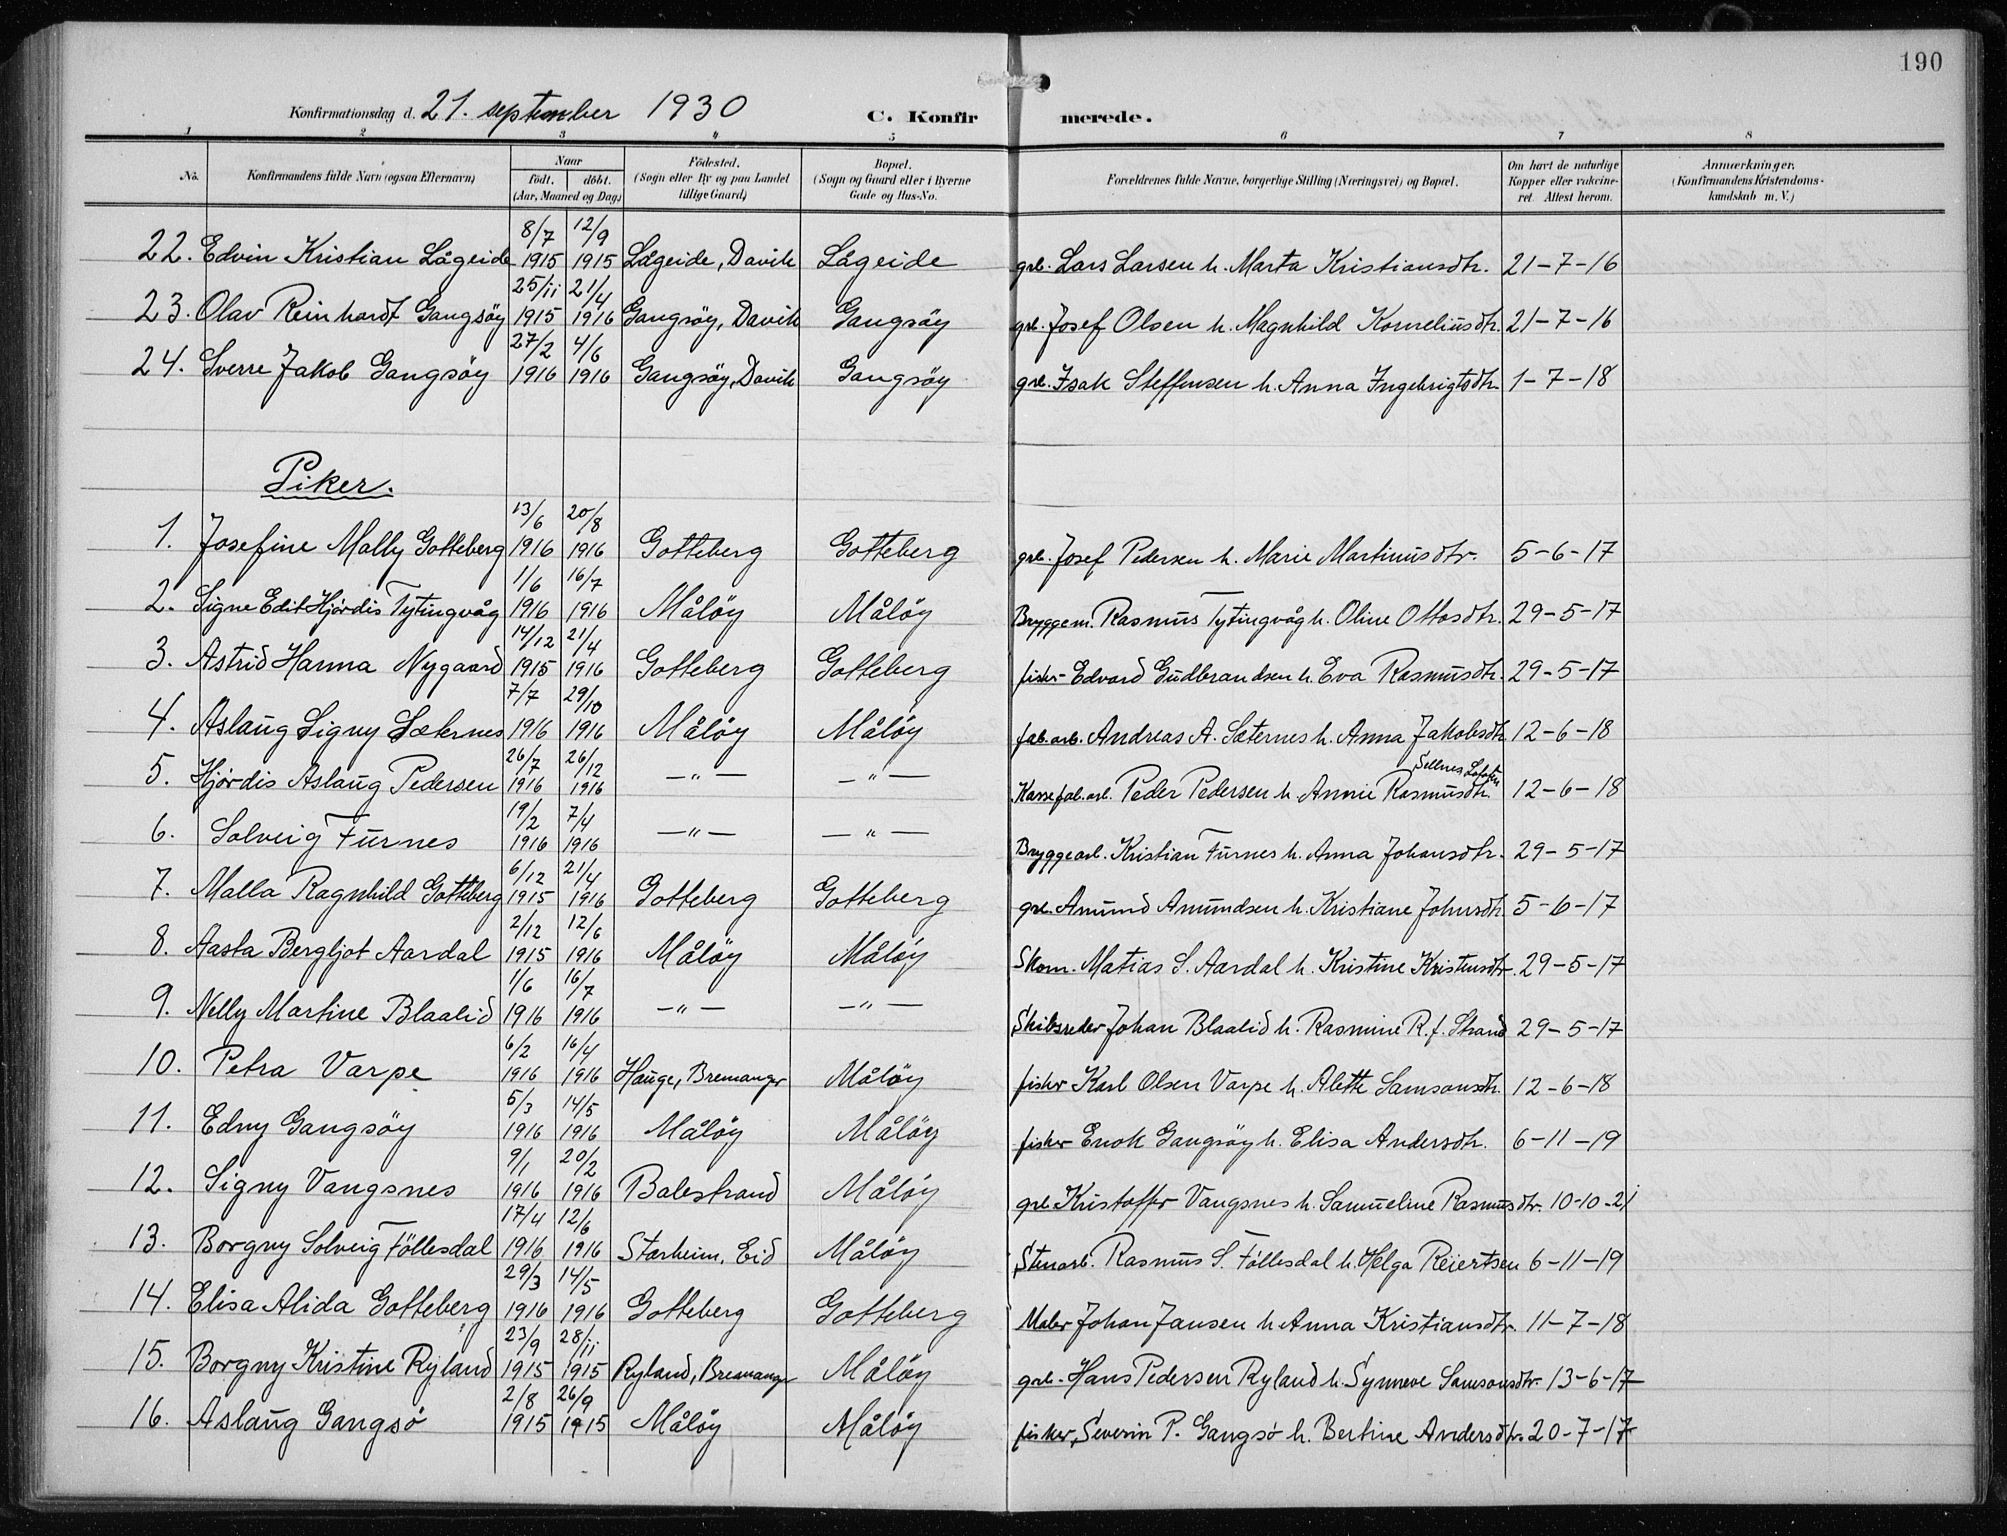 190
Konfirmationsdag d. 21. september 1930 C. Konfirmerede.
1 2 3 4 5 6 7 8
No. Konfirmandens fulde Navn (ogsaa Efternavn) Naar födt. döbt. (Aar, Maaned og Dag) Födested. (Sogn eller By og paa Landet tillige Gaard) Bopæl. (Sogn og Gaard eller i Byerne Gade og Hus-No. Forældrenes fulde Navne, borgerlige Stilling (Næringsvei) og Bopæl. Om havt de naturlige Kopper eller vakcineret. Attest herom. Anmærkninger. (Konfirmandens Kristendomskundskab m. V.)
22. Edvin Kristian Lågeide 8/7 1915 12/9 1915 Lågeide, Davik Lågeide grb. Lars Larsen h. Marta Kristiansdtr. 21-7-16
23. Olav Reinhardt Gangsöy 25/11 1915 21/4 1916 Gangsöy, Davik Gangsöy grb. Josef Olsen h. Magnhild Korneliusdtr. 21-7-16
24. Sverre Jakob Gangsöy 27/2 1916 4/6 1916 Gangsöy, Davik Gangsöy grb. Isak Steffensen h. Anna Ingebrigtsdtr. 1-7-18
Piker.
1. Josefine Mally Gotteberg 13/6 1916 20/8 1916 Gotteberg Gotteberg grb. Josef Pedersen h. Marie Martinusdtr. 5-6-17
2. Signe Edit Hjördis Tytingvåg 1/6 1916 16/7 1916 Målöy Målöy Bryggem. Rasmus Tytingvåg h. Oline Ottosdtr. 29-5-17
3. Astrid Hanna Nygaard 14/12 1915 21/4 1916 Gotteberg Gotteberg fisker Edvard Gudbrandsen h. Eva Rasmusdtr. 29-5-17
4. Aslaug Signy Sæternes 7/7 1916 29/10 1916 Målöy Målöy fab.arb. Andreas A. Sæternes h. Anna Jakobsdtr. 12-6-18
5. Hjördis Aslaug Pedersen 26/7 1916 26/12 1916 —"— —"— Kassefab.arb. Peder Pedersen h. Annie Rasmusdtr. Sellnes Lofoten 12-6-18
6. Solveig Furnes 19/2 1916 7/4 1916 —"— —"— Bryggearb. Kristian Furnes h. Anna Johansdtr. 29-5-17
7. Malla Ragnhild Gotteberg 6/12 1915 21/4 1916 Gotteberg Gotteberg grb. Amund Amundsen h. Kristiane Johnsdtr. 5-6-17
8. Aasta Bergljot Aardal 2/12 1915 12/6 1916 Målöy Målöy Skom. Matias S. Aardal h. Kristine Kristensdtr. 29-5-17
9. Nelly Martine Blaalid 1/6 1916 16/7 1916 —"— —"— Skibsreder Johan Blaalid h. Rasmine R. f. Strand 29-5-17
10. Petra Varpe 6/2 1916 16/4 1916 Hauge, Bremanger Målöy fisker Karl Olsen Varpe h. Alette Samsonsdtr. 12-6-18
11. Edny Gangsöy 5/3 1916 14/5 1916 Målöy Målöy fisker Enok Gangsöy h. Elisa Andersdtr. 6-11-19
12. Signy Vangsnes 9/1 1916 20/2 1916 Balestrand Målöy grb. Kristoffer Vangsnes h. Samueline Rasmusdtr. 10-10-21
13. Borgny Solveig Föllesdal 17/4 1916 12/6 1916 Starheim, Eid Målöy Stenarb. Rasmus S. Föllesdal h. Helga Reiertsen 6-11-19
14. Elisa Alida Gotteberg 29/3 1916 14/5 1916 Gotteberg Gotteberg Maler Johan Jansen h. Anna Kristiansdtr. 11-7-18
15. Borgny Kristine Ryland 23/9 1915 28/11 1915 Ryland, Bremanger Målöy grb. Hans Pedersen Ryland h. Synneve Samsonsdtr. 13-6-17
16. Aslaug Gangsö 2/8 1915 26/9 1915 Målöy Målöy fisker, Severin P. Gangsö h. Bertine Andersdtr. 20-7-17